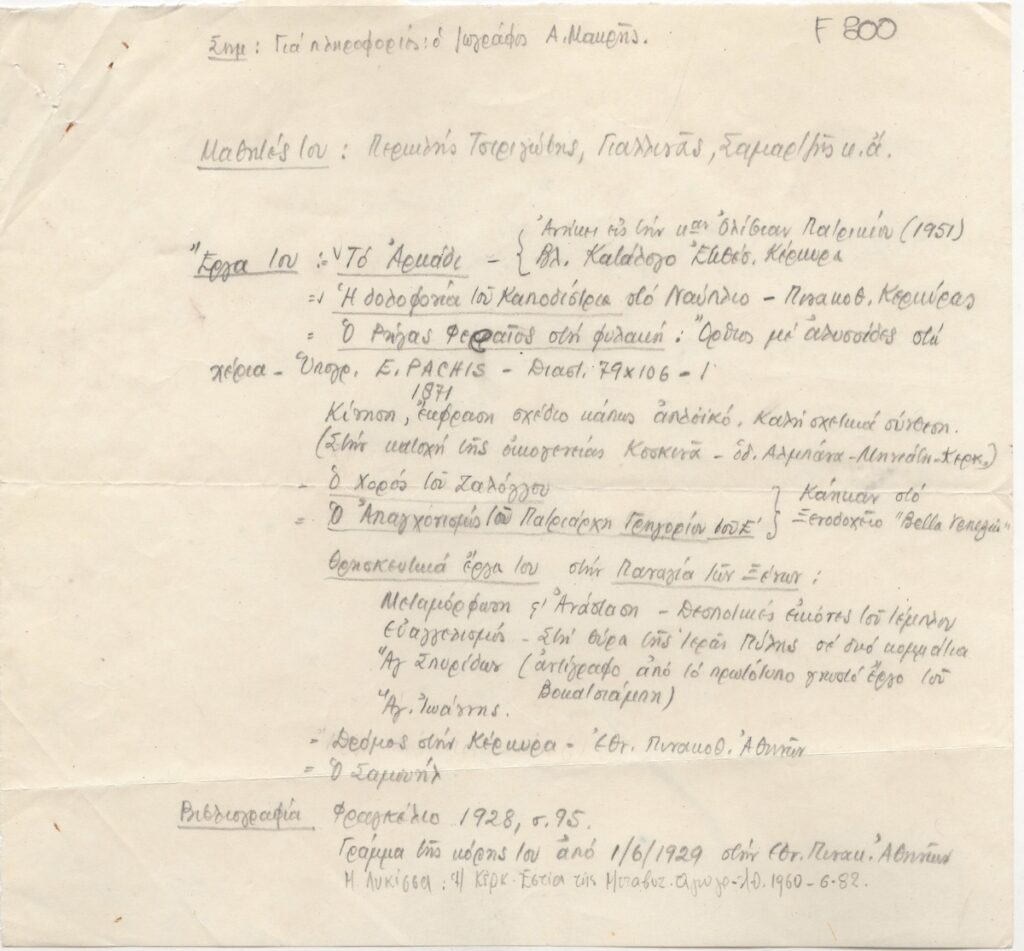 F 800
Σημ: Γιά πληροφορίες: ὁ ζωγράφος Α. Μακρῆς.
Μαθητές του : Περικλῆς Τσιριγώτης, Γιαλλινᾶς, Σαμαρτζῆς κ.ἄ.
Ἔργα του : = Τό Ἀρκάδι - { Ἀνήκει εἰς τήν καν Ὀλίβιαν Πατρικίου (1951)
Βλ. Κατάλογο Ἐκθέσ. Κέρκυρα
= Ἡ δολοφονία τοῦ Καποδίστρια στό Ναύπλιο - Πινακοθ. Κερκύρας
= Ὁ Ρήγας Φεραῖος στή φυλακή : Ὄρθιος μέ ἁλυσσίδες στά
χέρια - Ὑπογρ. E. PACHIS - Διαστ. 79x106 - 1
1871
Κίνηση, ἔκφραση σχέδιο κάπως ἁπλοϊκό. Καλή σχετικά σύνθεση.
(Στήν κατοχή τῆς οἰκογενείας Κοσκινᾶ - ὁδ. Αλμπάνα - Μηνιάτη - Κερκ.)
- Ὁ Χορός τοῦ Ζαλόγγου
= Ὁ Ἀπαγχονισμός τοῦ Πατριάρχη Γρηγορίου τοῦ Ε' } Κάηκαν στό
Ξενοδοχεῖο "Bella Venezia"
Θρησκευτικά ἔργα του στήν Παναγία τῶν Ξένων :
Μεταμόρφωση ς' Ἀνάσταση - Δεσποτικές εἰκόνες τοῦ τέμπλου
Εὐαγγελισμός - Στή θύρα τῆς Ἱερᾶς Πύλης σέ δυό κομμάτια
Ἅγ Σπυρίδων (ἀντίγραφο ἀπό τό πρωτότυπο γνωστό ἔργο τοῦ
Βοκατσιάμπη)
Ἅγ. Ἰωάννης.
= Δρόμος στήν Κέρκυρα - Ἐθν. Πινακοθ. Ἀθηνῶν
= Ὁ Σαμουήλ
Βιβλιογραφία Φραγκέλιο 1928, σ. 95.
Γράμμα τῆς κόρης του ἀπό 1/6/1929 στήν Ἐθν. Πινακ. Ἀθηνῶν
Η Λυκίσσα : Ἡ Κερκ. Εστία της 1960 - 6 - 82.